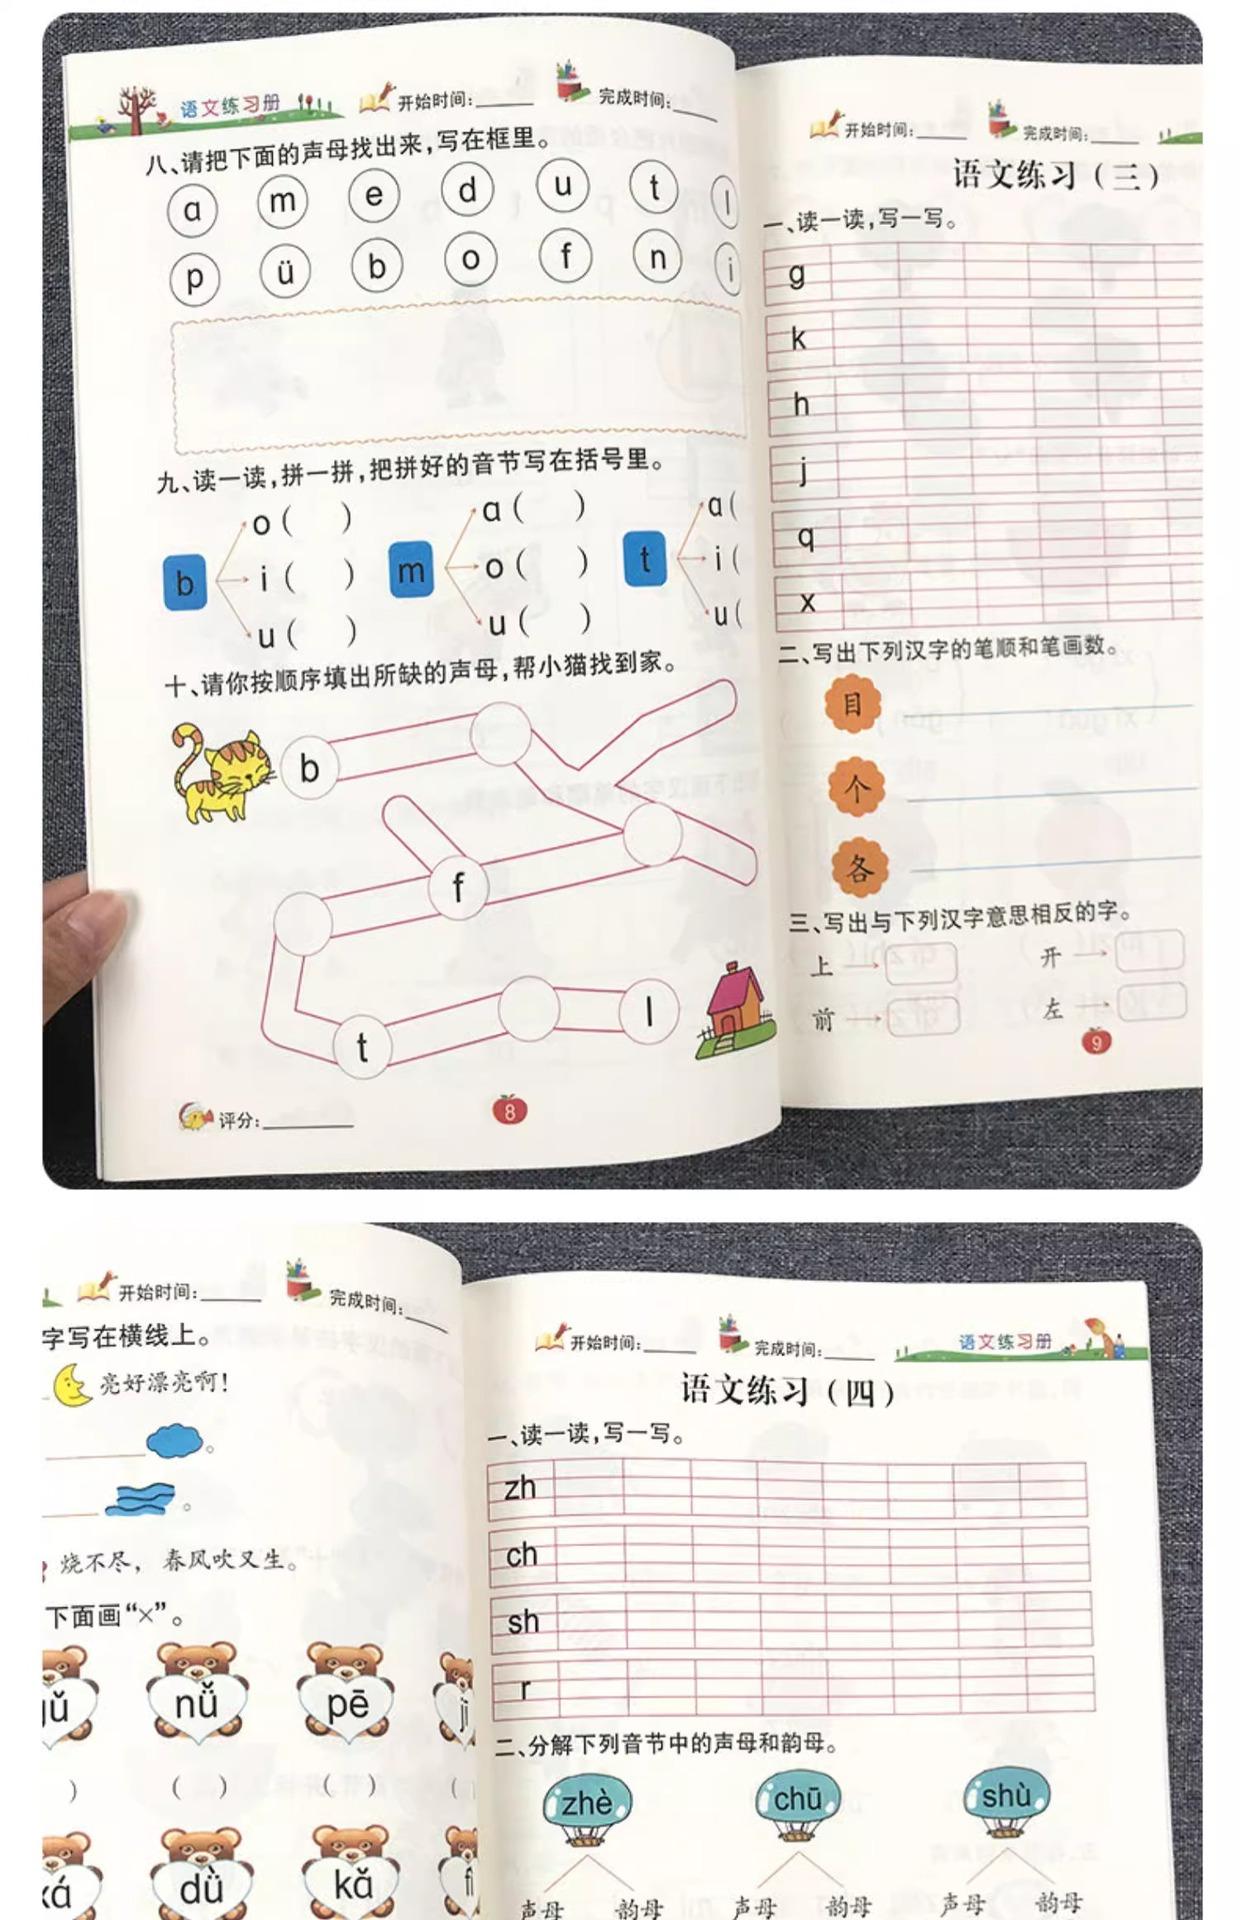 语文练习册 开始时间:______ 完成时间:_____
八、请把下面的声母找出来,写在框里。
a m e d u t l
p ü b o f n i
九、读一读,拼一拼,把拼好的音节写在括号里。
b
o( )
i( )
u( )
m
a( )
o( )
u( )
t
a(
i(
u(
十、请你按顺序填出所缺的声母,帮小猫找到家。
b
f
t l
评分:________
8
开始时间:_____ 完成时间:_____
语文练习(三)
一、读一读,写一写。
g
k
h
j
q
x
二、写出下列汉字的笔顺和笔画数。
目
个
各
三、写出与下列汉字意思相反的字。
上→ 开→
前→ 左→
9
开始时间:______ 完成时间:_____
字写在横线上。
亮好漂亮啊!
。
。
烧不尽, 春风吹又生。
下面画“×”。
nǚ pē
) ( ) ( ) (
dǜ kǎ
开始时间:_____ 完成时间:_____ 语文练习册
语文练习(四)
一、读一读,写一写。
zh
ch
sh
r
二、分解下列音节中的声母和韵母。
zhè chū shù
声母 韵母 声母 韵母 声母 韵母